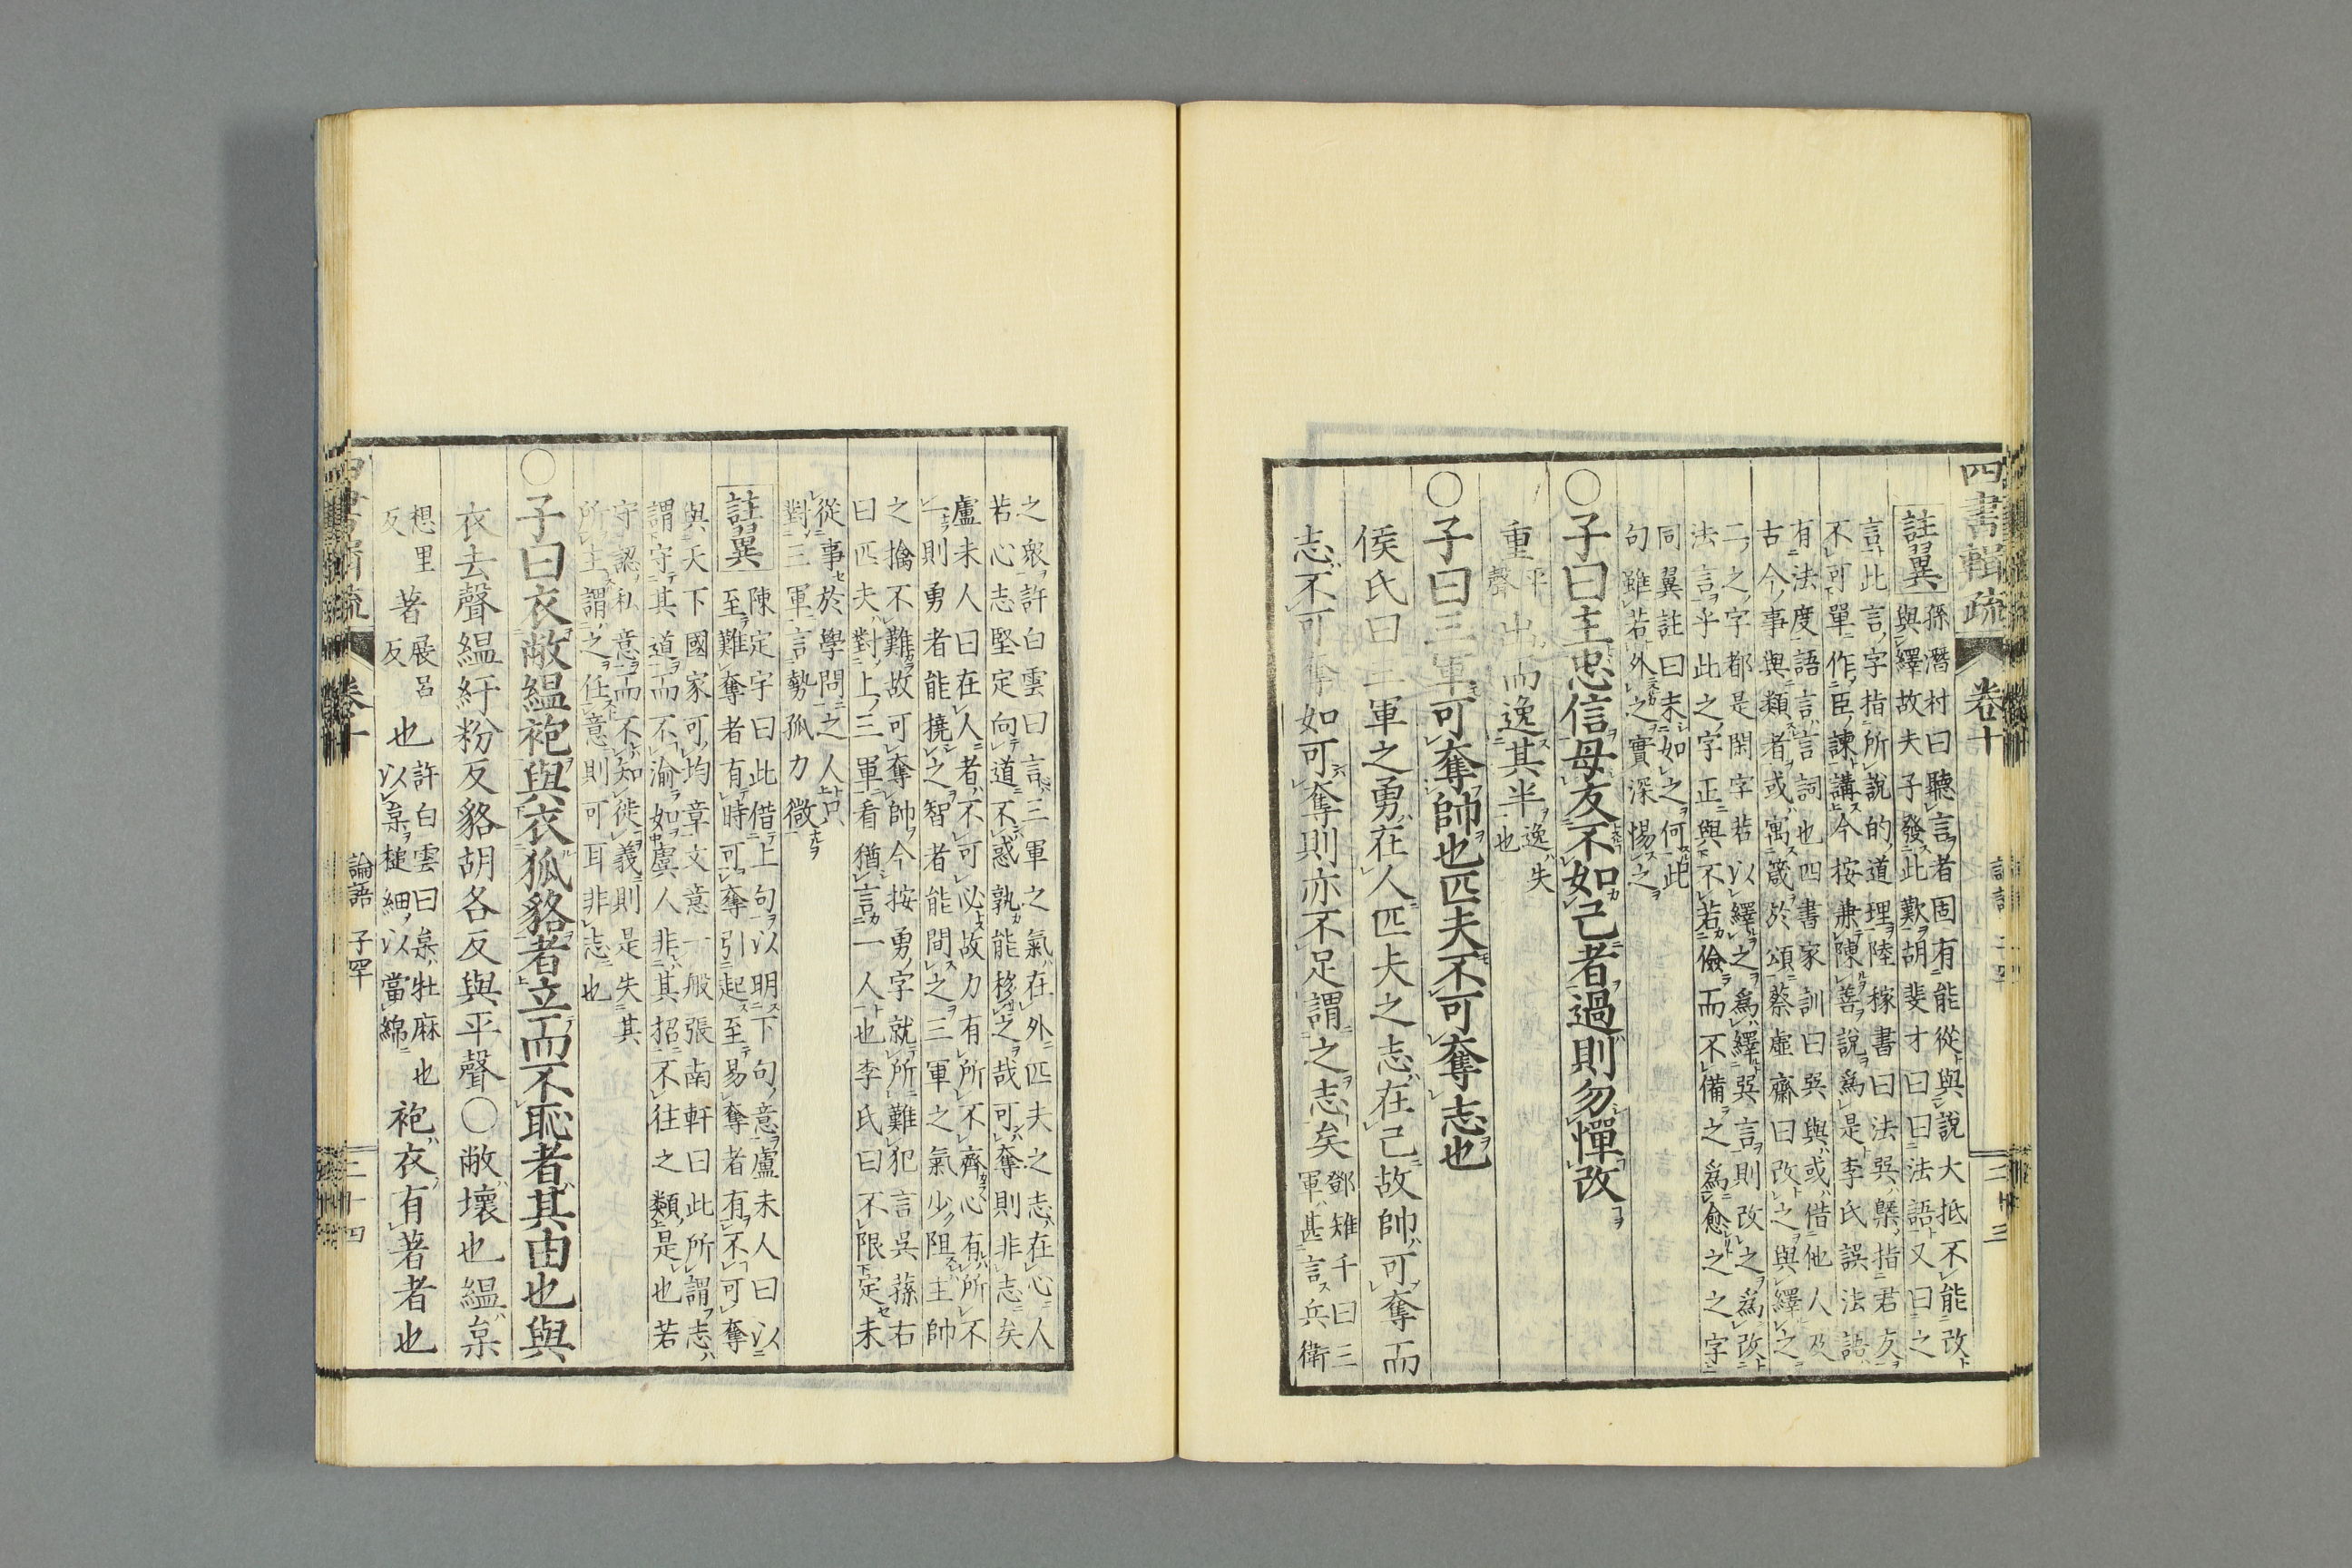 四書輯疏 卷十 三十三
註異 孫潛村曰聽言者固有能從與說大抵不能改
與繹故夫子發此歎胡斐才曰曰法語又曰之
言此言字指所說的道理陸稼書曰法巽槩指君友
不可單作臣諫講今按兼陳善說爲是李氏誤法語
有法度語言言詞也四書家訓曰巽與或借他人及
古今事與類者或寓箴於頌蔡虛齋曰改之與繹之
二之字都是閑字若以繹之爲繹巽言則改之爲改
法言乎此之字正與不若儉而不備之爲愈之之字
同翼註曰未如之何此
句雖若外之實深惕之
○子曰主忠信毋友不如己者過則勿憚改
重平聲出而逸其半逸失也
○子曰三軍可奪帥也匹夫不可奪志也
侯氏曰三軍之勇在人匹夫之志在己故帥可奪而
志不可奪如可奪則亦不足謂之志矣鄧雉千曰三
軍甚言兵衛
之衆許白雲曰言三軍之氣在外匹夫之志在心人
若心志堅定向道不惑孰能移之哉可奪則非志矣
盧未人曰在人者不可必故力有所不齊心有所不
一則勇者能撓之智者能間之三軍之氣少阻主帥
之擒不難故可奪帥今按勇字就所難犯言吳蓀右
曰匹夫對上三軍看猶言一人也李氏曰不限定未
從事於學問之人只
對三軍言勢孤力微
註異 陳定宇曰此借上句以明下句意盧未人曰以
至難奪者有時可奪引起至易奪者有不可奪
與天下國家可均章文意一般張南軒曰此所謂志
謂守其道而不渝如虞人非其招不往之類是也若
守認私意而不知徙義則是失其
所主謂之任意則可耳非志也
○子曰衣敝縕袍與衣狐貉者立而不恥者其由也與
衣去聲縕紆粉反貉胡各反與平聲○敝壞也縕枲
想里反著展呂反也許白雲曰枲牡麻也
以枲槌細以當綿袍衣有著者也
卷十 論語 子罕 三十四